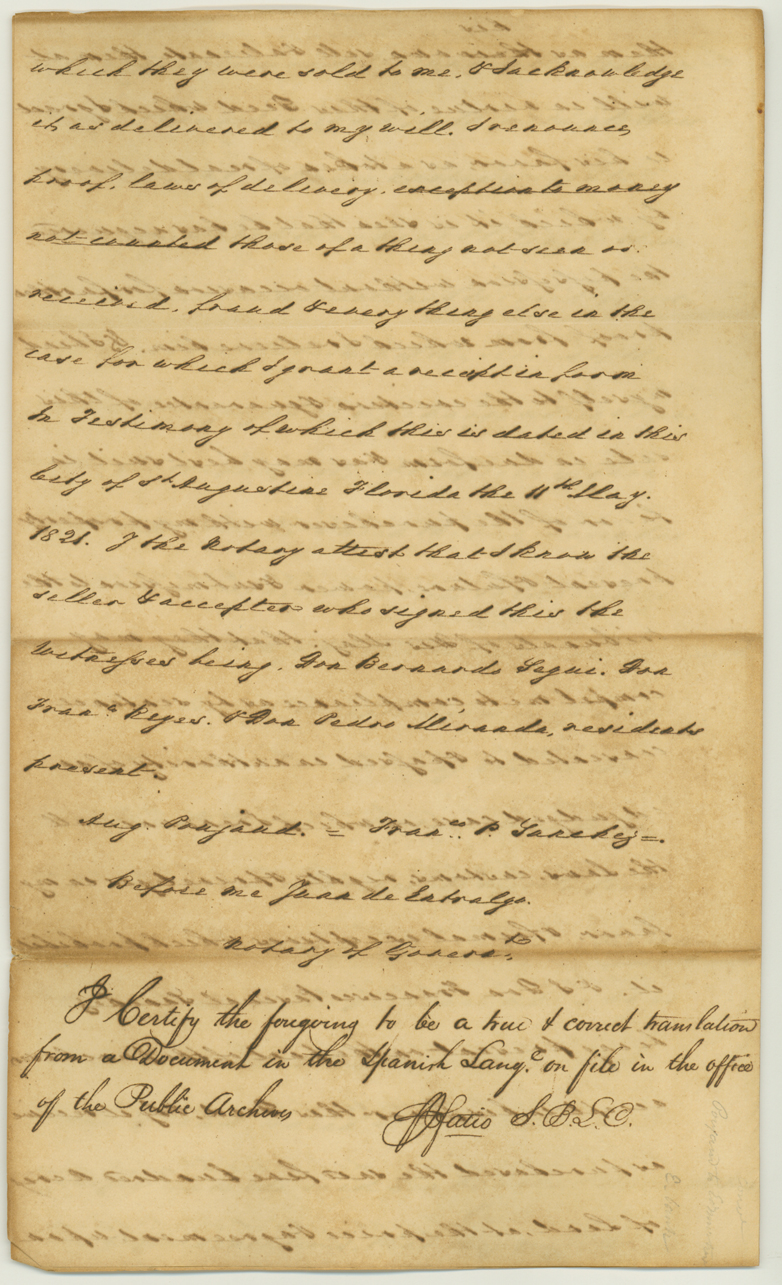 which they were sold to me. & I acknowledge
it, as delivered to my will. I renounce,
proof, laws of delivery, exceptionate money
not counted those of a thing not seen or
received, fraud & every thing else in the
case for which I grant a receipt in form
In Testimony of which this is dated in this
City of St Augustine Florida the 11th May.
1821. I the Notary attest that I know the
seller & accepter who signed this the
Witnesses being, Don Bernardo Segui. Don
Franco Reyes. & Don Pedro Miranda, residents
present.
Aug. Poujaud. = Franco P. Sanchez =.
Before me Juan de Entralgo.
Notary of Governt.
I Certify the foregoing to be a true & correct translation
from a Document in the Spanish Lange on file in the office
of the Public Archives
S. B. L. C.